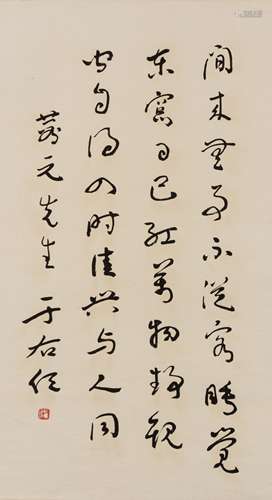 閒来無事不從容睡覺
东窗日已紅萬物静觀
皆自得四时佳興与人同
元先生 于右任